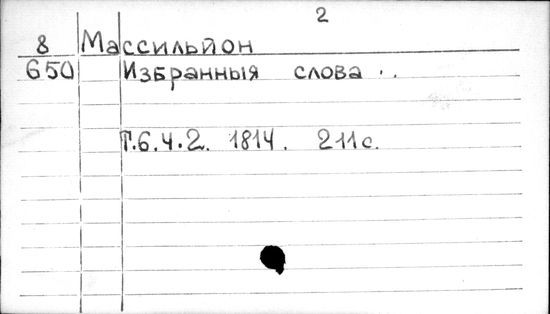 2
8 Массильйон
650 Избранныя слова ..
Т.6.Ч.2. 1814. 211с.